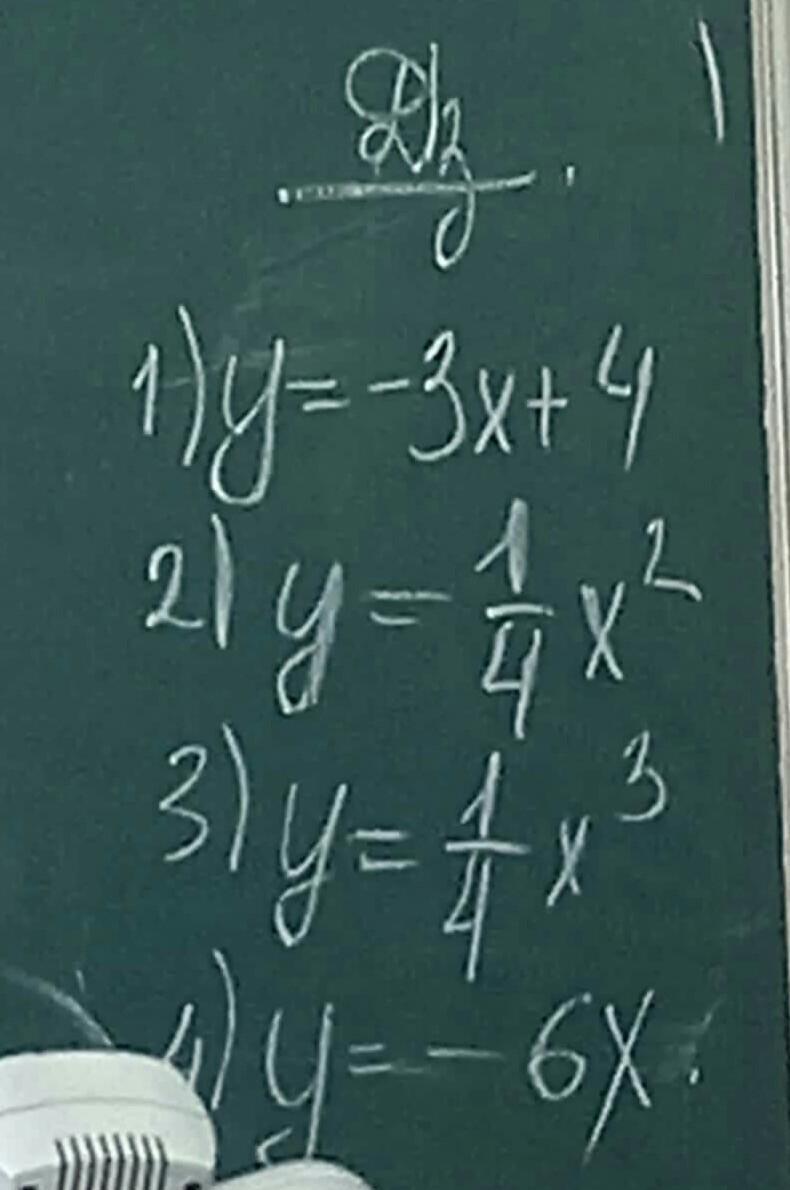 Д/з
1) y = -3x + 4
2) y = 1/4 x²
3) y = 1/4 x³
4) y = - 6x.